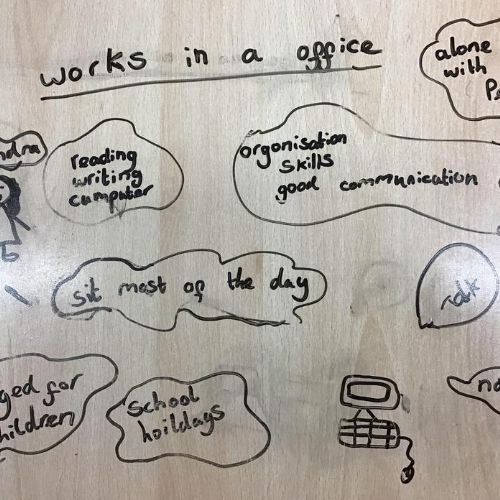 works in a office
alone
with
ndra
reading
writing
cumputer
orgonisation
skills
good communication
sit most of the day
ged for
hildren
school
hoildays